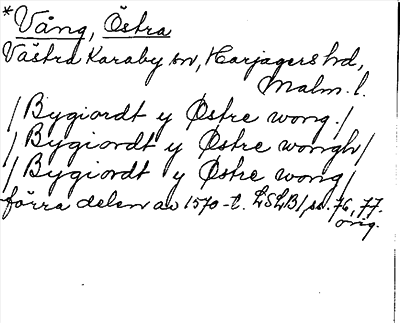 *Vång, Östra
Västra Karaby sn, Harjagers hd,
Malm. l.
/Bygiordt y Østre wong./
/Bygiordt y Østre wongh/
/Bygiordt y Østre wong/
förra delen av 1570-t. LSLB1, ss. 76, 77.
orig.